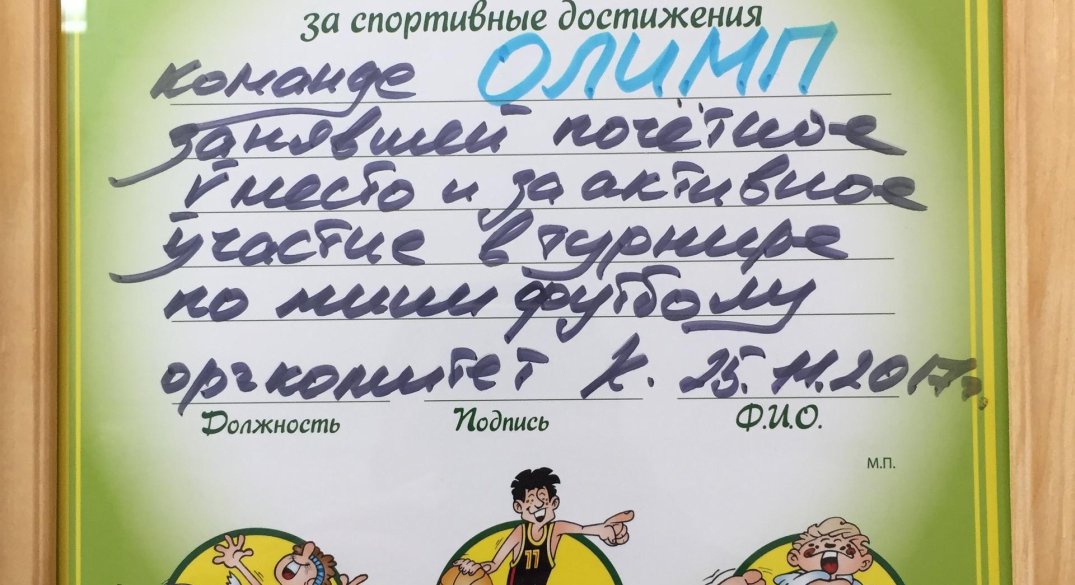 за спортивные достижения
команде ОЛИМП
занявшей почётное
V место и за активное
участие в турнире
по мини футболу
оргкомитет К. 25.11.2017г.
Должность Подпись Ф.И.О.
М.П.
11